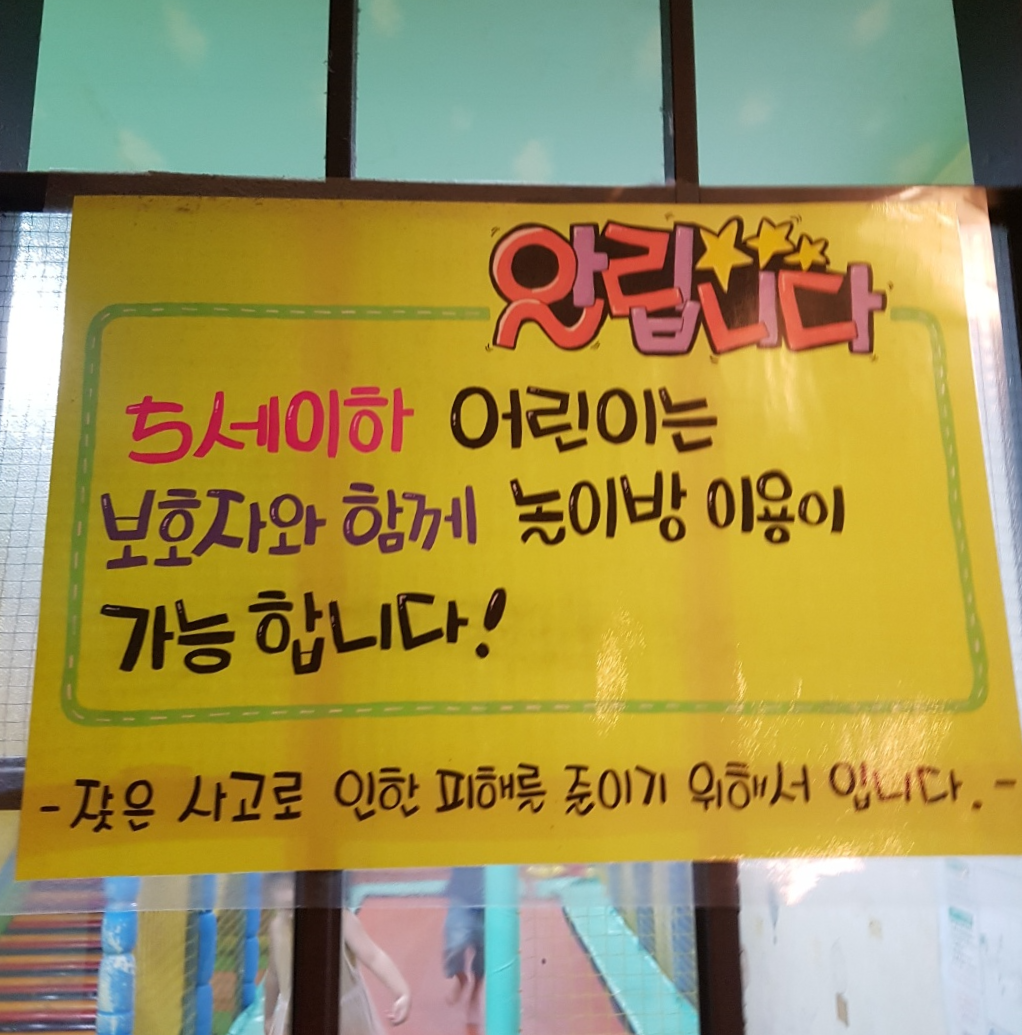 알립니다
5세이하 어린이는
보호자와 함께 놀이방 이용이
가능 합니다!
- 잦은 사고로 인한 피해를 줄이기 위해서 입니다. -